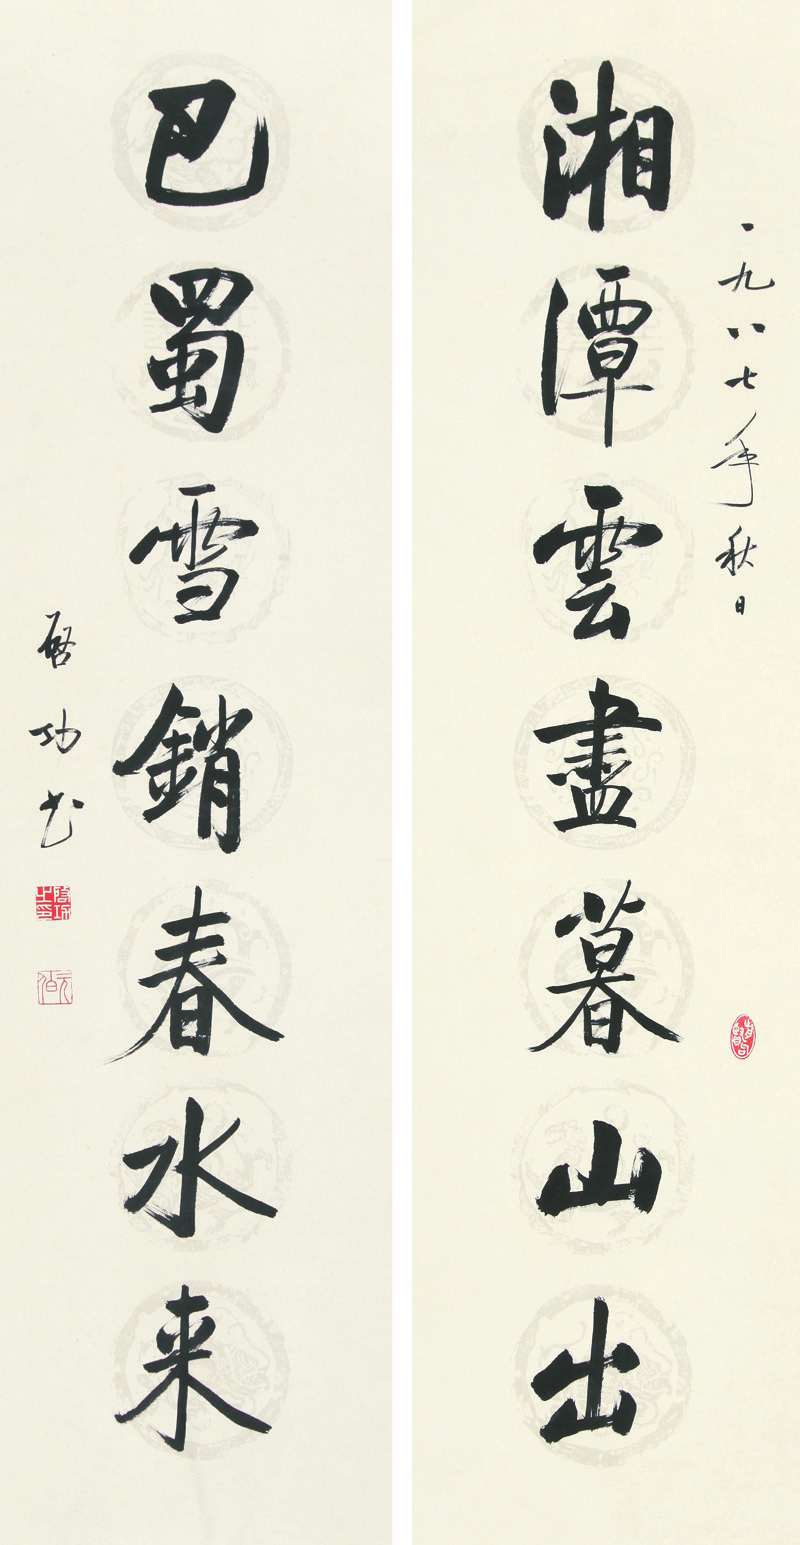 一九八七年秋日
湘潭雲盡暮山出
巴蜀雪銷春水来
啓功书
啓功之印
元白